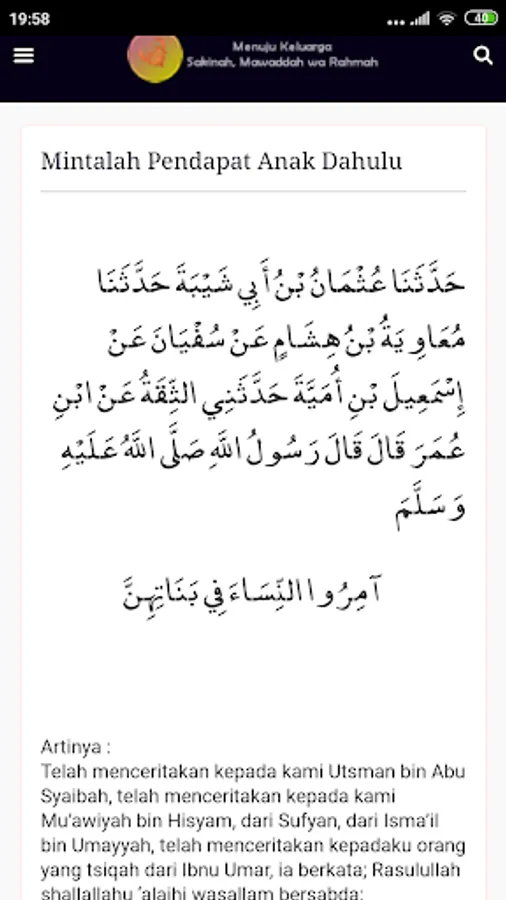 19:58
40
Menuju Keluarga
Sakinah, Mawaddah wa Rahmah
Mintalah Pendapat Anak Dahulu
حَدَّثَنَا عُثْمَانُ بْنُ أَبِي شَيْبَةَ حَدَّثَنَا
مُعَاوِيَةُ بْنُ هِشَامٍ عَنْ سُفْيَانَ عَنْ
إِسْمَعِيلَ بْنِ أُمَيَّةَ حَدَّثَنِي الثِّقَةُ عَنْ ابْنِ
عُمَرَ قَالَ قَالَ رَسُولُ اللَّهِ صَلَّى اللَّهُ عَلَيْهِ
وَسَلَّمَ
آمِرُوا النِّسَاءَ فِي بَنَاتِهِنَّ
Artinya :
Telah menceritakan kepada kami Utsman bin Abu
Syaibah, telah menceritakan kepada kami
Mu'awiyah bin Hisyam, dari Sufyan, dari Isma'il
bin Umayyah, telah menceritakan kepadaku orang
yang tsiqah dari Ibnu Umar, ia berkata; Rasulullah
shallallahu 'alaihi wasallam bersabda: